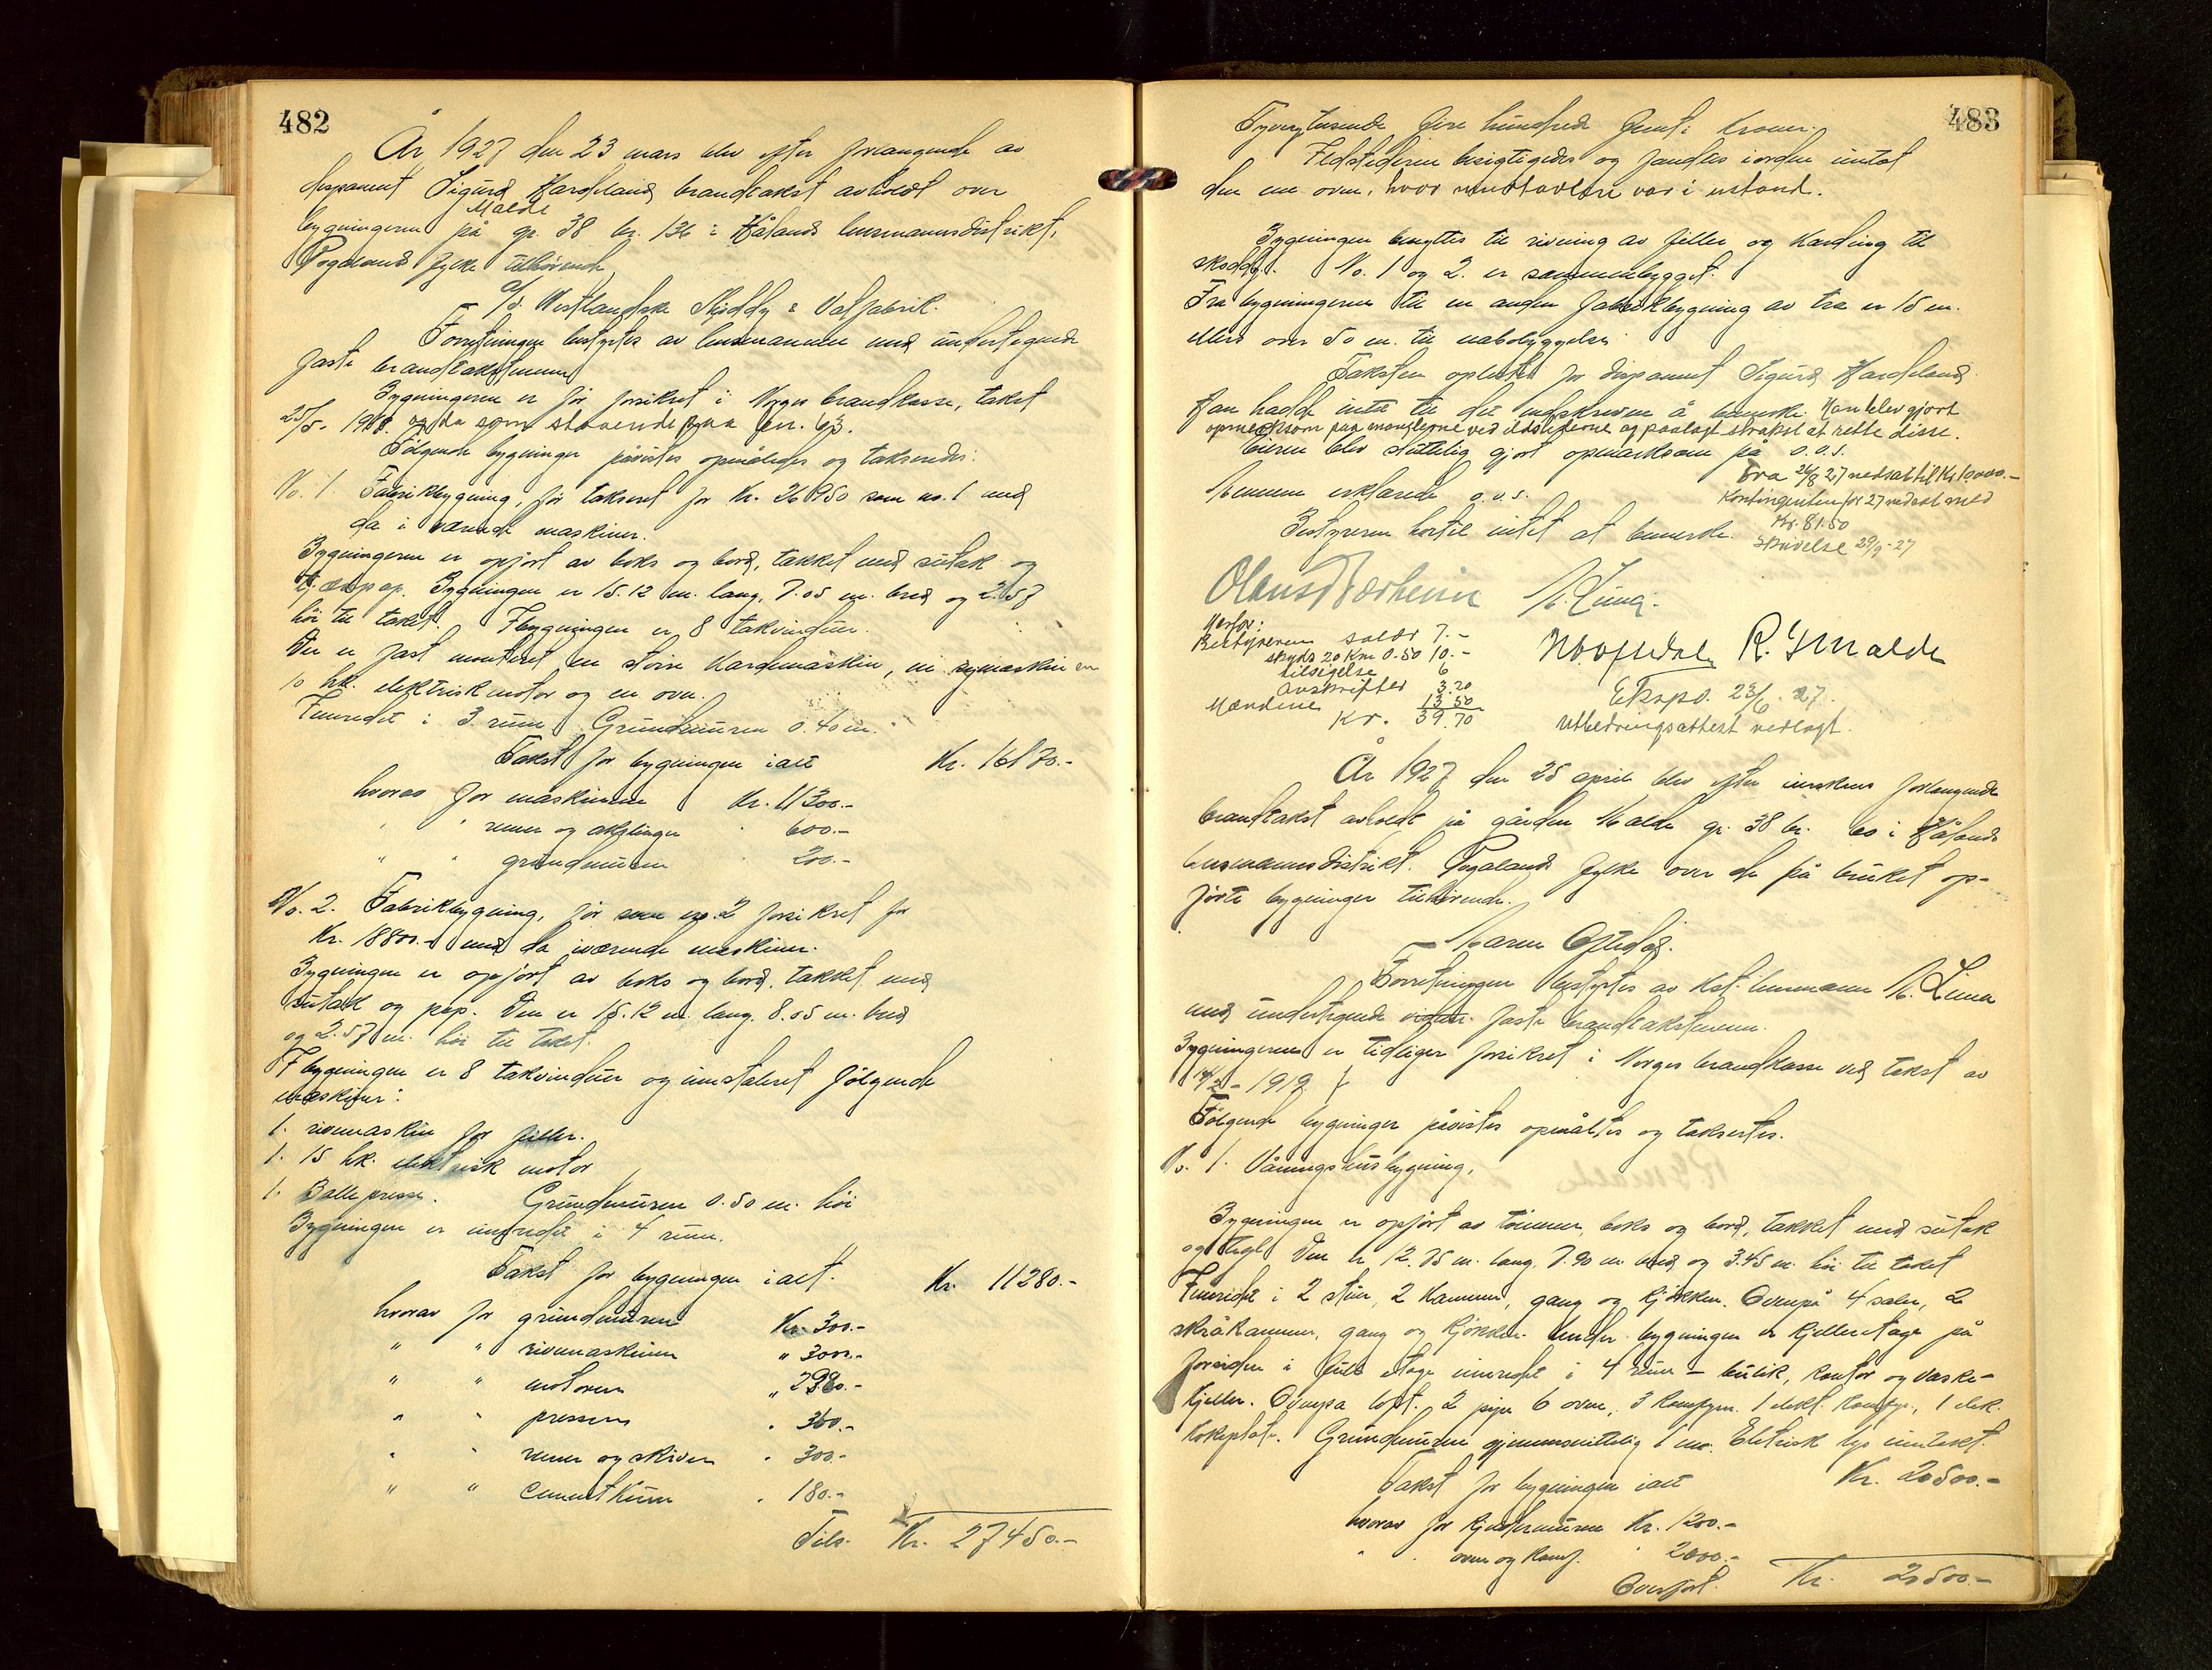 482
År 1927 den 23 mars blev efter forlangende av
disponent Sigurd Hardeland brandtakst avholdt over
Malde
bygningerne på gr. 38 br. 136 i Hålands lensmannsdistrikt,
Rogaland fylke tilhørende
a/s. Westlandske Shoddy & Vatfabrik.
Forretningen bestyrtes av lensmannen med undertegnede
faste brandtakstmenn
Bygningerne er før forsikret i Norges brandkasse, takst
25/5- 1918. og da som staaende paa br. 63.
Følgende bygninger påvistes opmåltes og takseredes:
No. 1. Fabrikbygning, før takseret for Kr. 26950 som no. 1 med
da i værende maskiner.
Bygningerne er opført av boks og bord, tækket med sutak og
tjærepap. Bygningen er 15.12 m. lang, 7.05 m. bred og 2.57
høi til taket. I bygningen er 8 takvinduer.
Der er fast monteret en større Kardemaskin, en symaskin en
10 hk. elektrisk motor og en ovn.
Innredet i 3 rum. Grundmuren 0.40 m.
Takst for bygningen ialt Kr. 16170.-
hvorav for maskinerne Kr. 11300.-
" " remer og akslinger " 600.-
" " grundmuren " 200.-
No. 2. Fabrikbygning, før som no. 2 forsikret for
Kr. 18800.- med da iværende maskiner.
Bygningen er opført av boks og bord, tækket med
sutak og pap. Den er 15.12 m. lang. 8.05 m. bred
og 2.57 m. høi til taket.
I bygningen er 8 takvinduer og innstaleret følgende
maskiner:
1. rivemaskin for filler.
1. 15 hk. elektrisk motor
1. Ballepresse. Grundmuren 0.50 m. høi
Bygningen er innredet i 4 rum.
Takst for bygningen ialt. Kr. 11280.-
hvorav for grundmuren Kr. 300.-
" " rivemaskinen " 3000.-
" " motoren "
" " pressen " 360.-
" " remer og skiver " 300.-
" " cementkum " 180.-
Tils. Kr. 27450.-
483
Tyvesyvtusende fire hundrede femti Kroner.
Ildstederne besigtigedes og fandtes i orden untat
den ene oven, hvor var i ustand.
Bygningen benyttes til rivning av filler og Karding til
shoddy. No. 1 og 2. er sammenbygget.
Fra bygningerne til en anden fabrikbygning av træ er 15 m.
ellers over 50 m. til nabobyggelse
Taksten oplæstes for disponent Sigurd Hardeland.
Han hadde intet til det indskrevne å bemerke. Han blev gjort
opmerksom paa manglerne ved ildstederne og paalagt strakst at rette disse.
Eieren blev skriftlig gjort opmerksom på o.s.v.
Mennene erklærede o.s.v.
Fra 24/8 27 nedsat til Kr 10000.-
Kontingenten for 27 nedsat med
Kr. 81.50
Skrivelse 29/9-27
Bestyreren hertil intet at bemerke.
Olaus Bærheim M. Lima.
Herfor:
Bestyreren salær 7.-
skyds 20 Km 0.50 10.-
tilsigelse 6
avskrifter 3.20
Mændene 13.50
Kr. 39.70
R. G. Malde
Ekspd. 23/6 27.
Utbedringsattest vedlagt.
År 1927 den 25 april blev efter forlangende
brandtakst avholdt på gården Malde gr. 38 br. 60 i Hålands
lensmannsdistrikt. Rogaland fylke over de på bruket op-
førte bygninger tilhørende.
Maren Oftedal.
Forretningen bestyrtes av kst. lensmann M. Lima
med undertegnede faste brandtakstmenn.
Bygningerne er tidliger forsikret i Norges brandkasse ved takst av
1919.
Følgende bygninger påvistes opmåltes og takseertes.
No. 1. Våningshusbygning.
Bygningen er opført av tømmer, boks og bord, tækket med sutak
og tegl. Den er 12.75 m. lang, 7.90 m. bred og 3.45 m. høi til taket
Innredet i 2 stuer, 2 Kammer, gang og Kjøkken. Ovenpå 4 saler, 2
skråkammer, gang og kjøkken. Under bygningen er kjelleretage på
forsiden i full etage innredet i 4 rum – butik, kontor og vaske-
kjeller. Ovenpå loft. 2 piper 6 ovne, 3 Komfyrer. 1 elekt. Komfyr, 1 elek.
kokeplate. Grundmuren gjennemsnittelig 1 m. Eletrisk lys inntakt.
Takst for bygningen ialt Kr. 20500.-
hvorav for kjeldermuren Kr. 1200.-
" " ovner og komf. " 2000.-
Overført. Kr. 20500.-